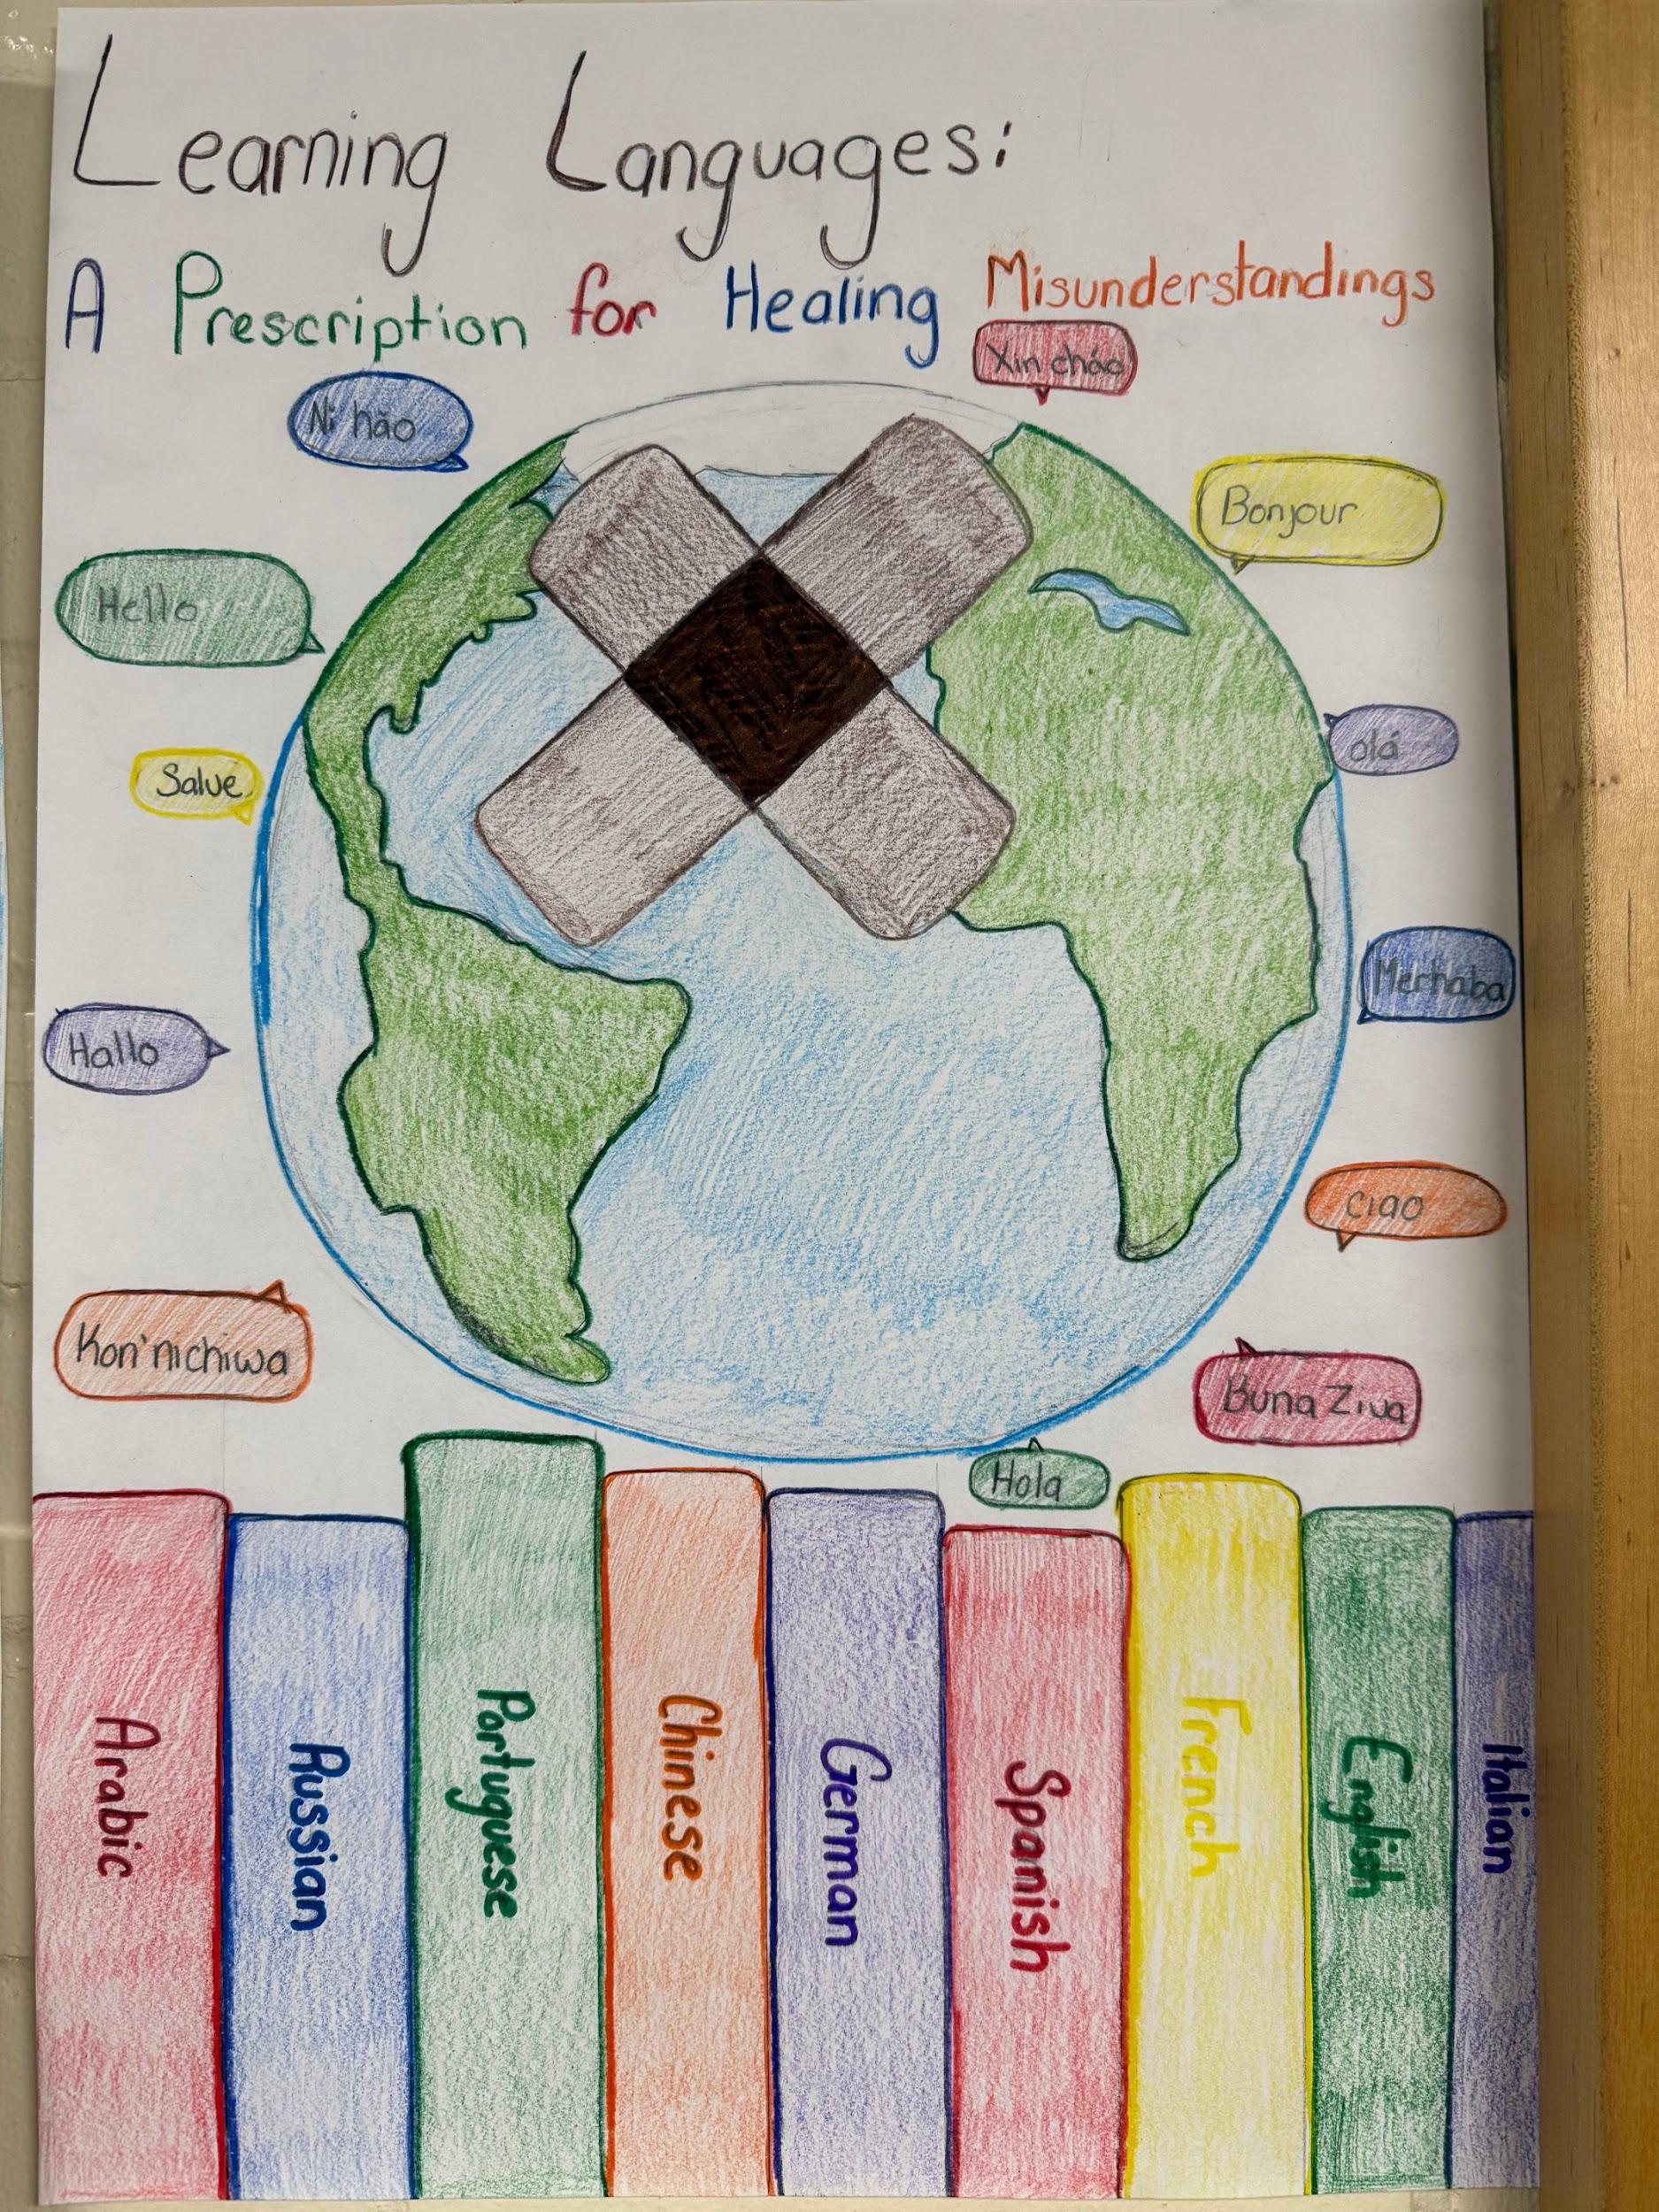 Learning Languages:
A Prescription for Healing Misunderstandings
Xin chào
Ni hăo
Bonjour
Hello
olá
Salve
Merhaba
Hallo
Ciao
Kon'nichiwa
Buna Ziua
Hola
Arabic
Russian
Portuguese
Chinese
German
Spanish
French
English
Italian